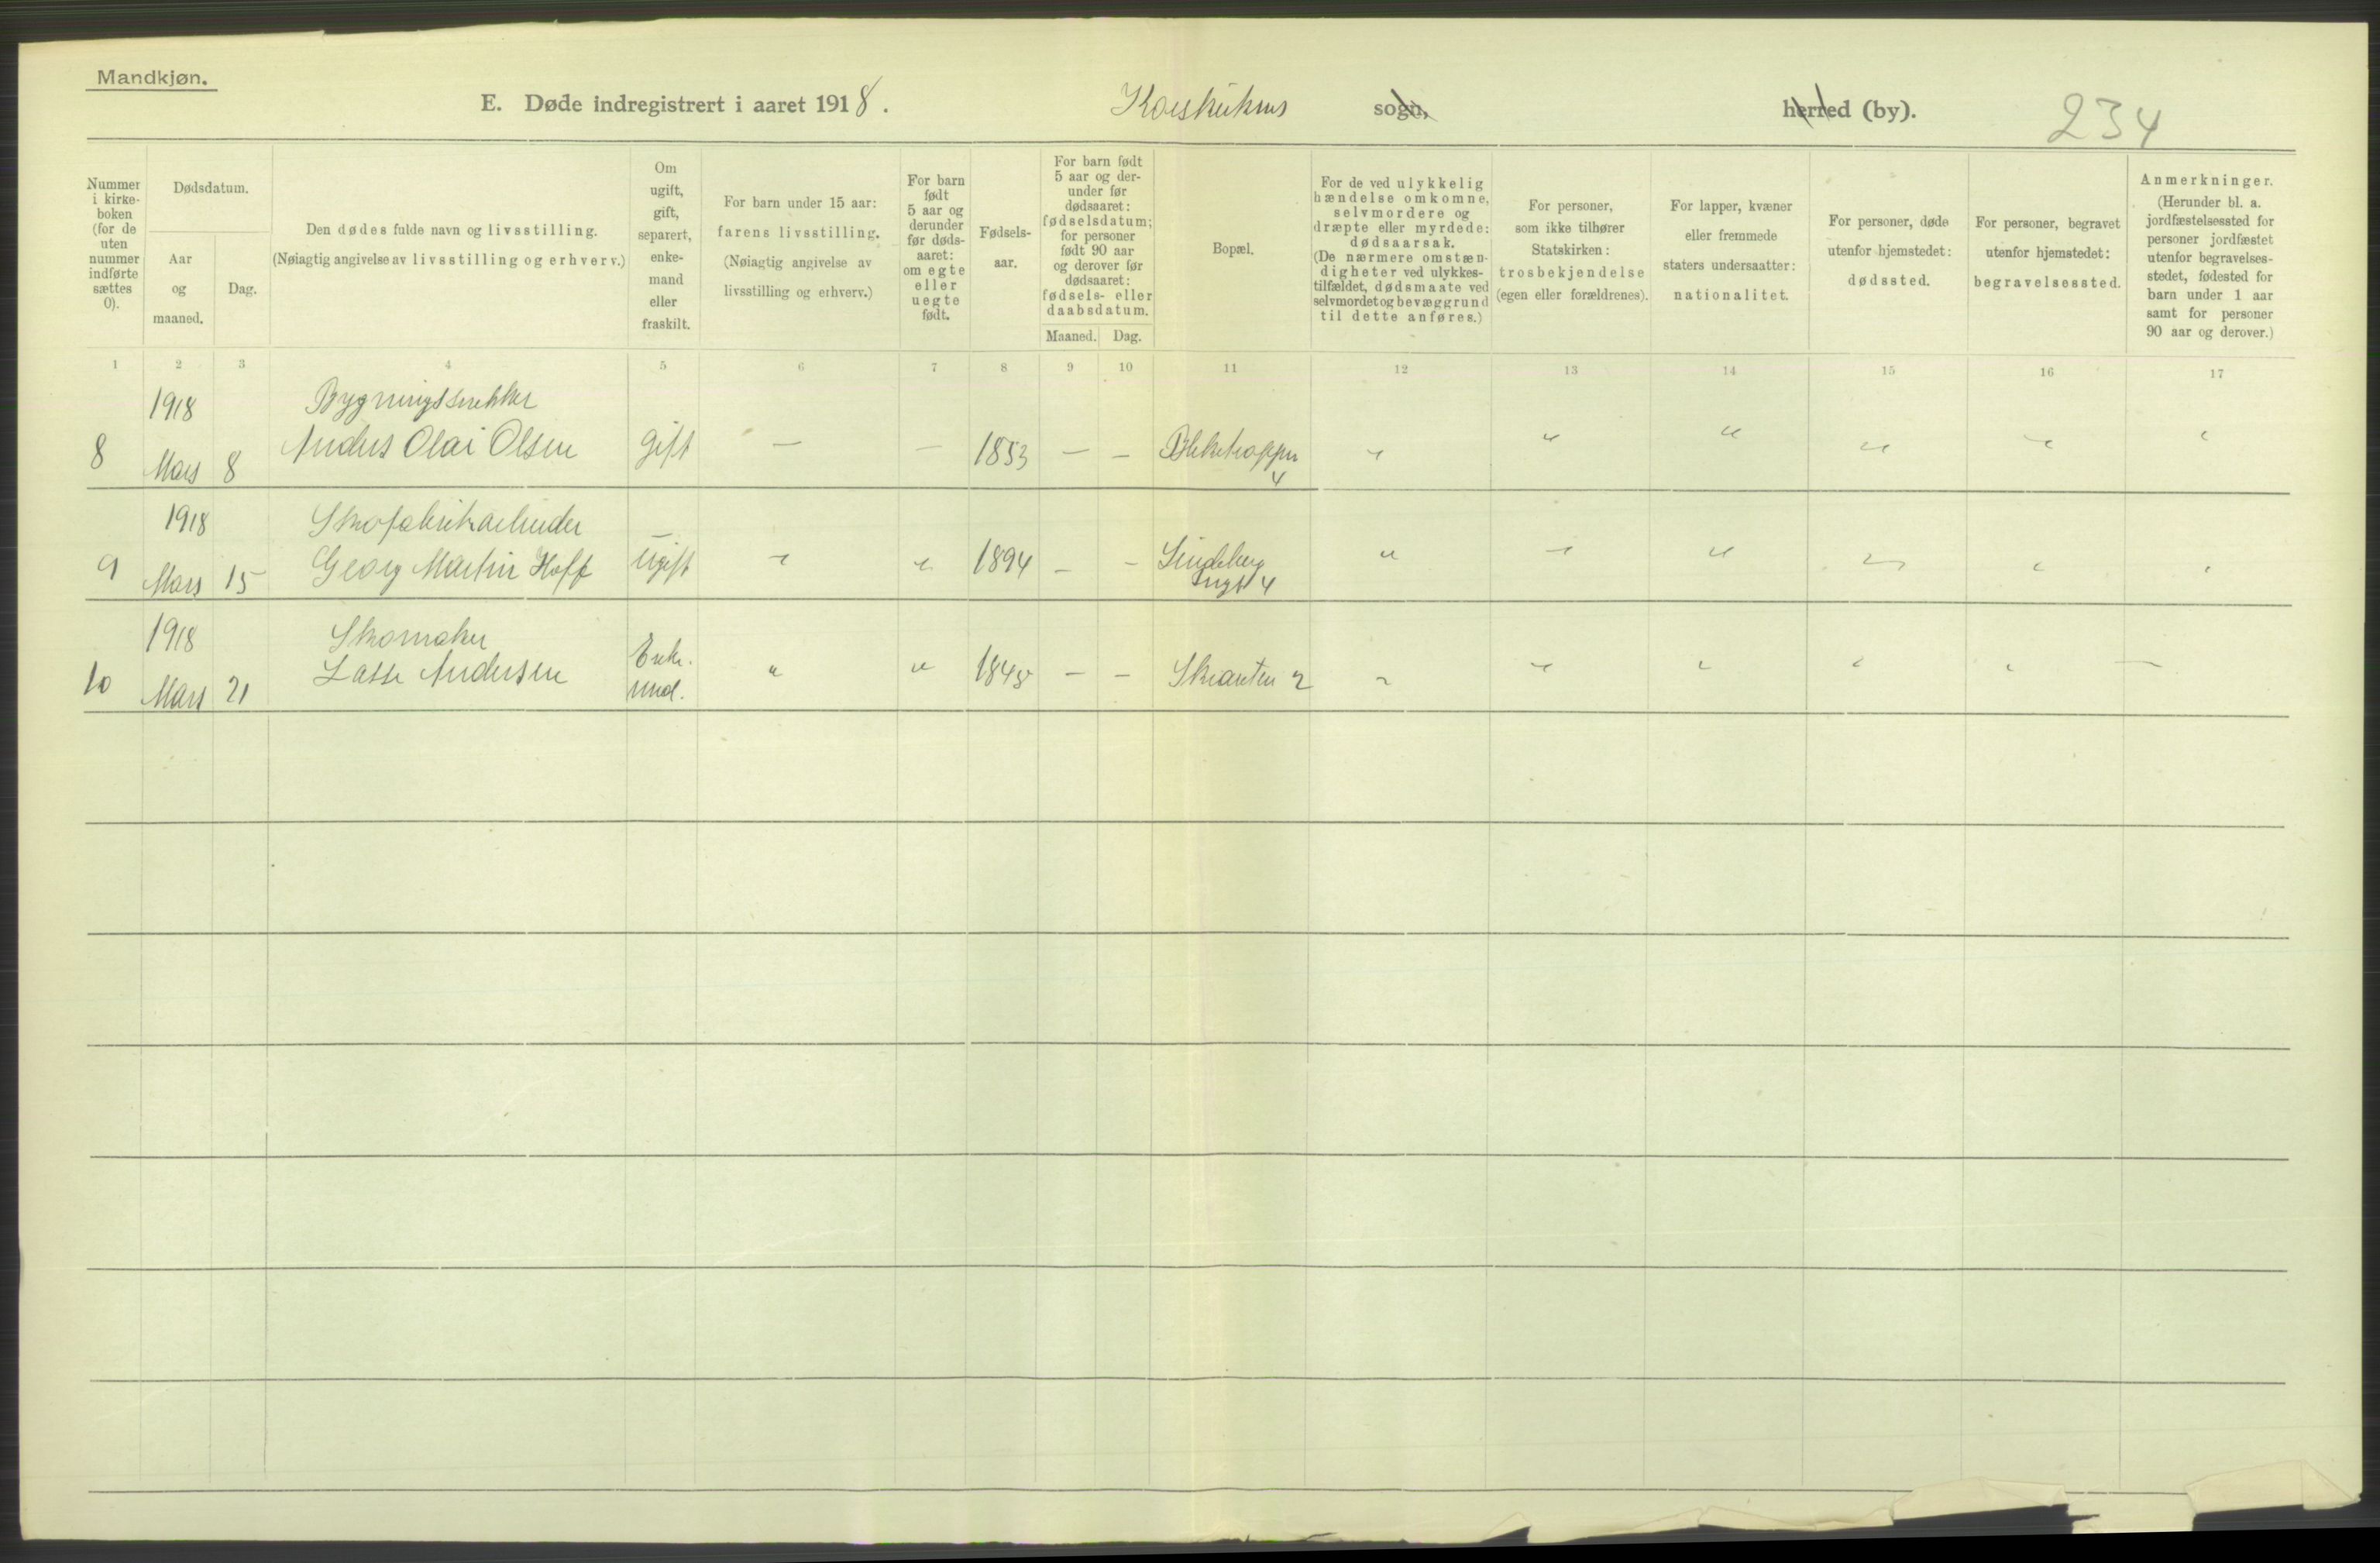 Mandkjøn.
E. Døde indregistrert i aaret 1918. Korskirkens sogn, herred (by). 234
Nummer i kirke-boken (for de uten nummer indførte sættes 0).
Dødsdatum.
Aar og maaned.
Dag.
Den dødes fulde navn og livsstilling.
(Nøiagtig angivelse av livsstilling og erhverv.)
Om ugift, gift, separert, enke-mand eller fraskilt.
For barn under 15 aar:
farens livsstilling.
(Nøiagtig angivelse av
livsstilling og erhverv.)
For barn født 5 aar og derunder før døds-aaret: om egte eller uegte født.
Fødsels-aar.
For barn født
5 aar og der-
under før
dødsaaret:
fødselsdatum;
for personer
født 90 aar
og derover før
dødsaaret:
fødsels- eller
daabsdatum.
Maaned. Dag.
Bopæl.
For de ved ulykkelig
hændelse omkomne,
selvmordere og
dræpte eller myrdede:
dødsaarsak.
(De nærmere omstæn-
digheter ved ulykkes-
tilfældet, dødsmaate ved
selvmordet og bevæggrund
til dette anføres.)
For personer,
som ikke tilhører
Statskirken:
trosbekjendelse
(egen eller forældrenes).
For lapper, kvæner
eller fremmede
staters undersaatter:
nationalitet.
For personer, døde
utenfor hjemstedet:
dødssted.
For personer, begravet
utenfor hjemstedet:
begravelsessted.
Anmerkninger.
(Herunder bl. a.
jordfæstelsessted for
personer jordfæstet
utenfor begravelses-
stedet, fødested for
barn under 1 aar
samt for personer
90 aar og derover.)
1 2 3 4 5 6 7 8 9 10 11 12 13 14 15 16 17
1918 Bygningssnekker
8 Mars 8 Anders Olai Olsen gift — — 1853 — — Bleketrappen 4 " " " " " "
1918 Skofabrikarbeider
9 Mars 15 Georg Martin Hoff ugift " " 1894 — — Lindeberg 4 " " " " " "
1918 Skomaker
10 Mars 21 Lasse Andersen Enke-mand. " " 1848 — — Skranten 2 " " " " " —